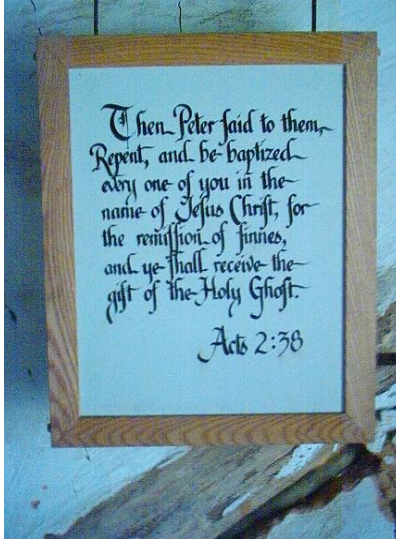 Then Peter ſaid to them,
Repent, and be baptized
every one of you in the
name of Jeſus Chriſt, for
the remiſſion of ſinnes,
and ye ſhall receive the
gift of the Holy Ghoſt.
Acts 2:38